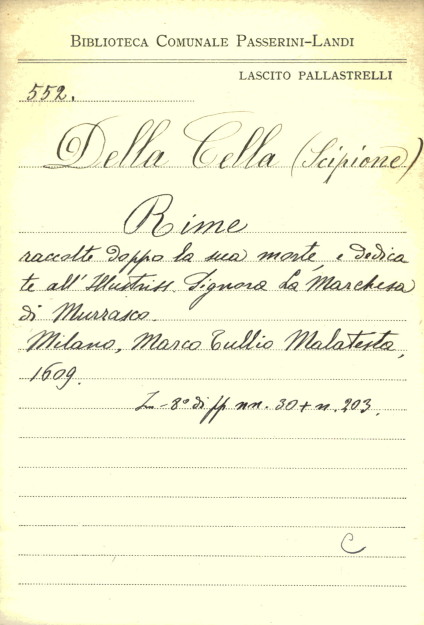 BIBLIOTECA COMUNALE PASSERINI-LANDI
LASCITO PALLASTRELLI
552.
Della Cella (Scipione)
Rime
raccolte doppo la sua morte e dedica
te all' Illustriss. Signora La Marchesa
di Murrasco.
Milano, Marco Tullio Malatesta,
1609.
In-8º di pp nn. 30 + n. 203.
C